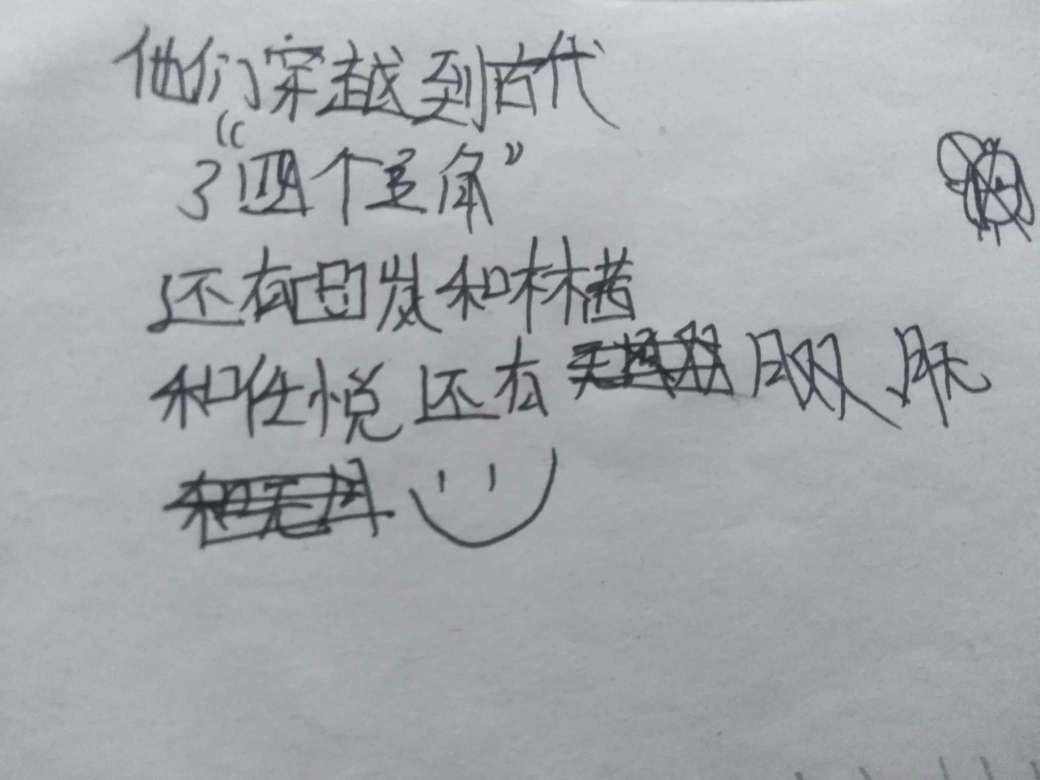 他们穿越到古代
了“四个主角”
还有田岚和林茜
和任悦还有